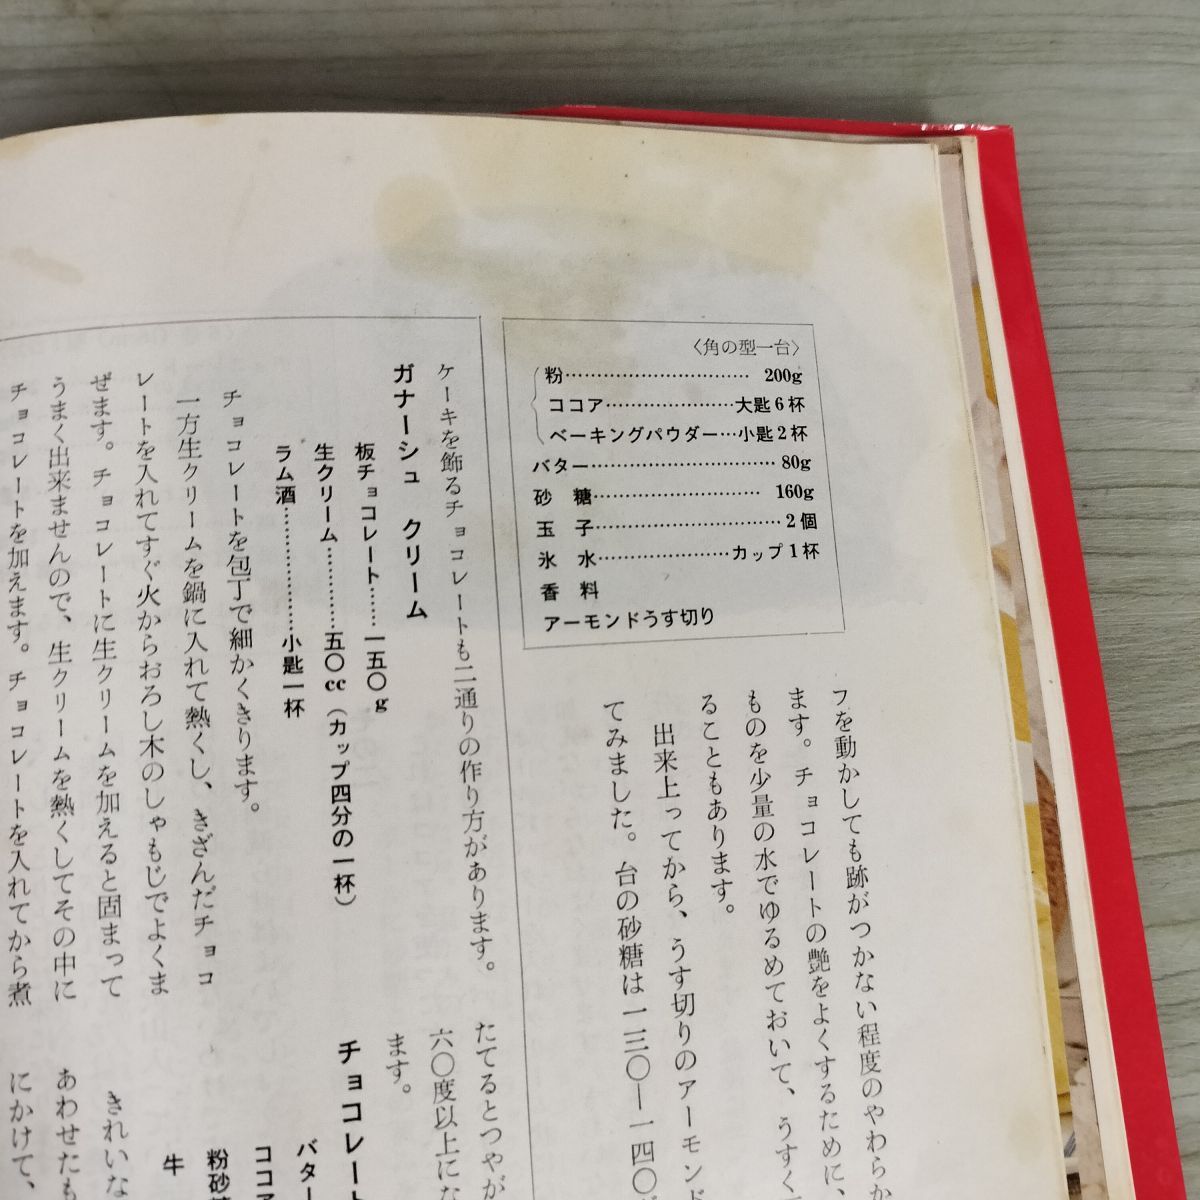 〈角の型一台〉
粉…………………… 200g
ココア…………………大匙6杯
ベーキングパウダー…小匙2杯
バター…………………… 80g
砂　糖…………………… 160g
玉　子……………………2個
氷　水…………………カップ1杯
香　料
アーモンドうす切り
フを動かしても跡がつかない程度のやわらか
ます。チョコレートの艶をよくするために、
ものを少量の水でゆるめておいて、うすく
ることもあります。
出来上ってから、うす切りのアーモンド
てみました。台の砂糖は一三〇―一四〇
ケーキを飾るチョコレートも二通りの作り方があります。
ガナーシュ　クリーム
板チョコレート……一五〇g
生クリーム…………五〇cc（カップ四分の一杯）
ラム酒………………小匙一杯
チョコレートを包丁で細かくきります。
一方生クリームを鍋に入れて熱くし、きざんだチョコ
レートを入れてすぐ火からおろし木のしゃもじでよくま
ぜます。チョコレートに生クリームを加えると固まって
うまく出来ませんので、生クリームを熱くしてその中に
チョコレートを加えます。チョコレートを入れてから煮
たてるとつやが
六〇度以上にな
ます。
チョコレート
バター
ココア
粉砂糖
牛
きれいな
あわせたも
にかけて、